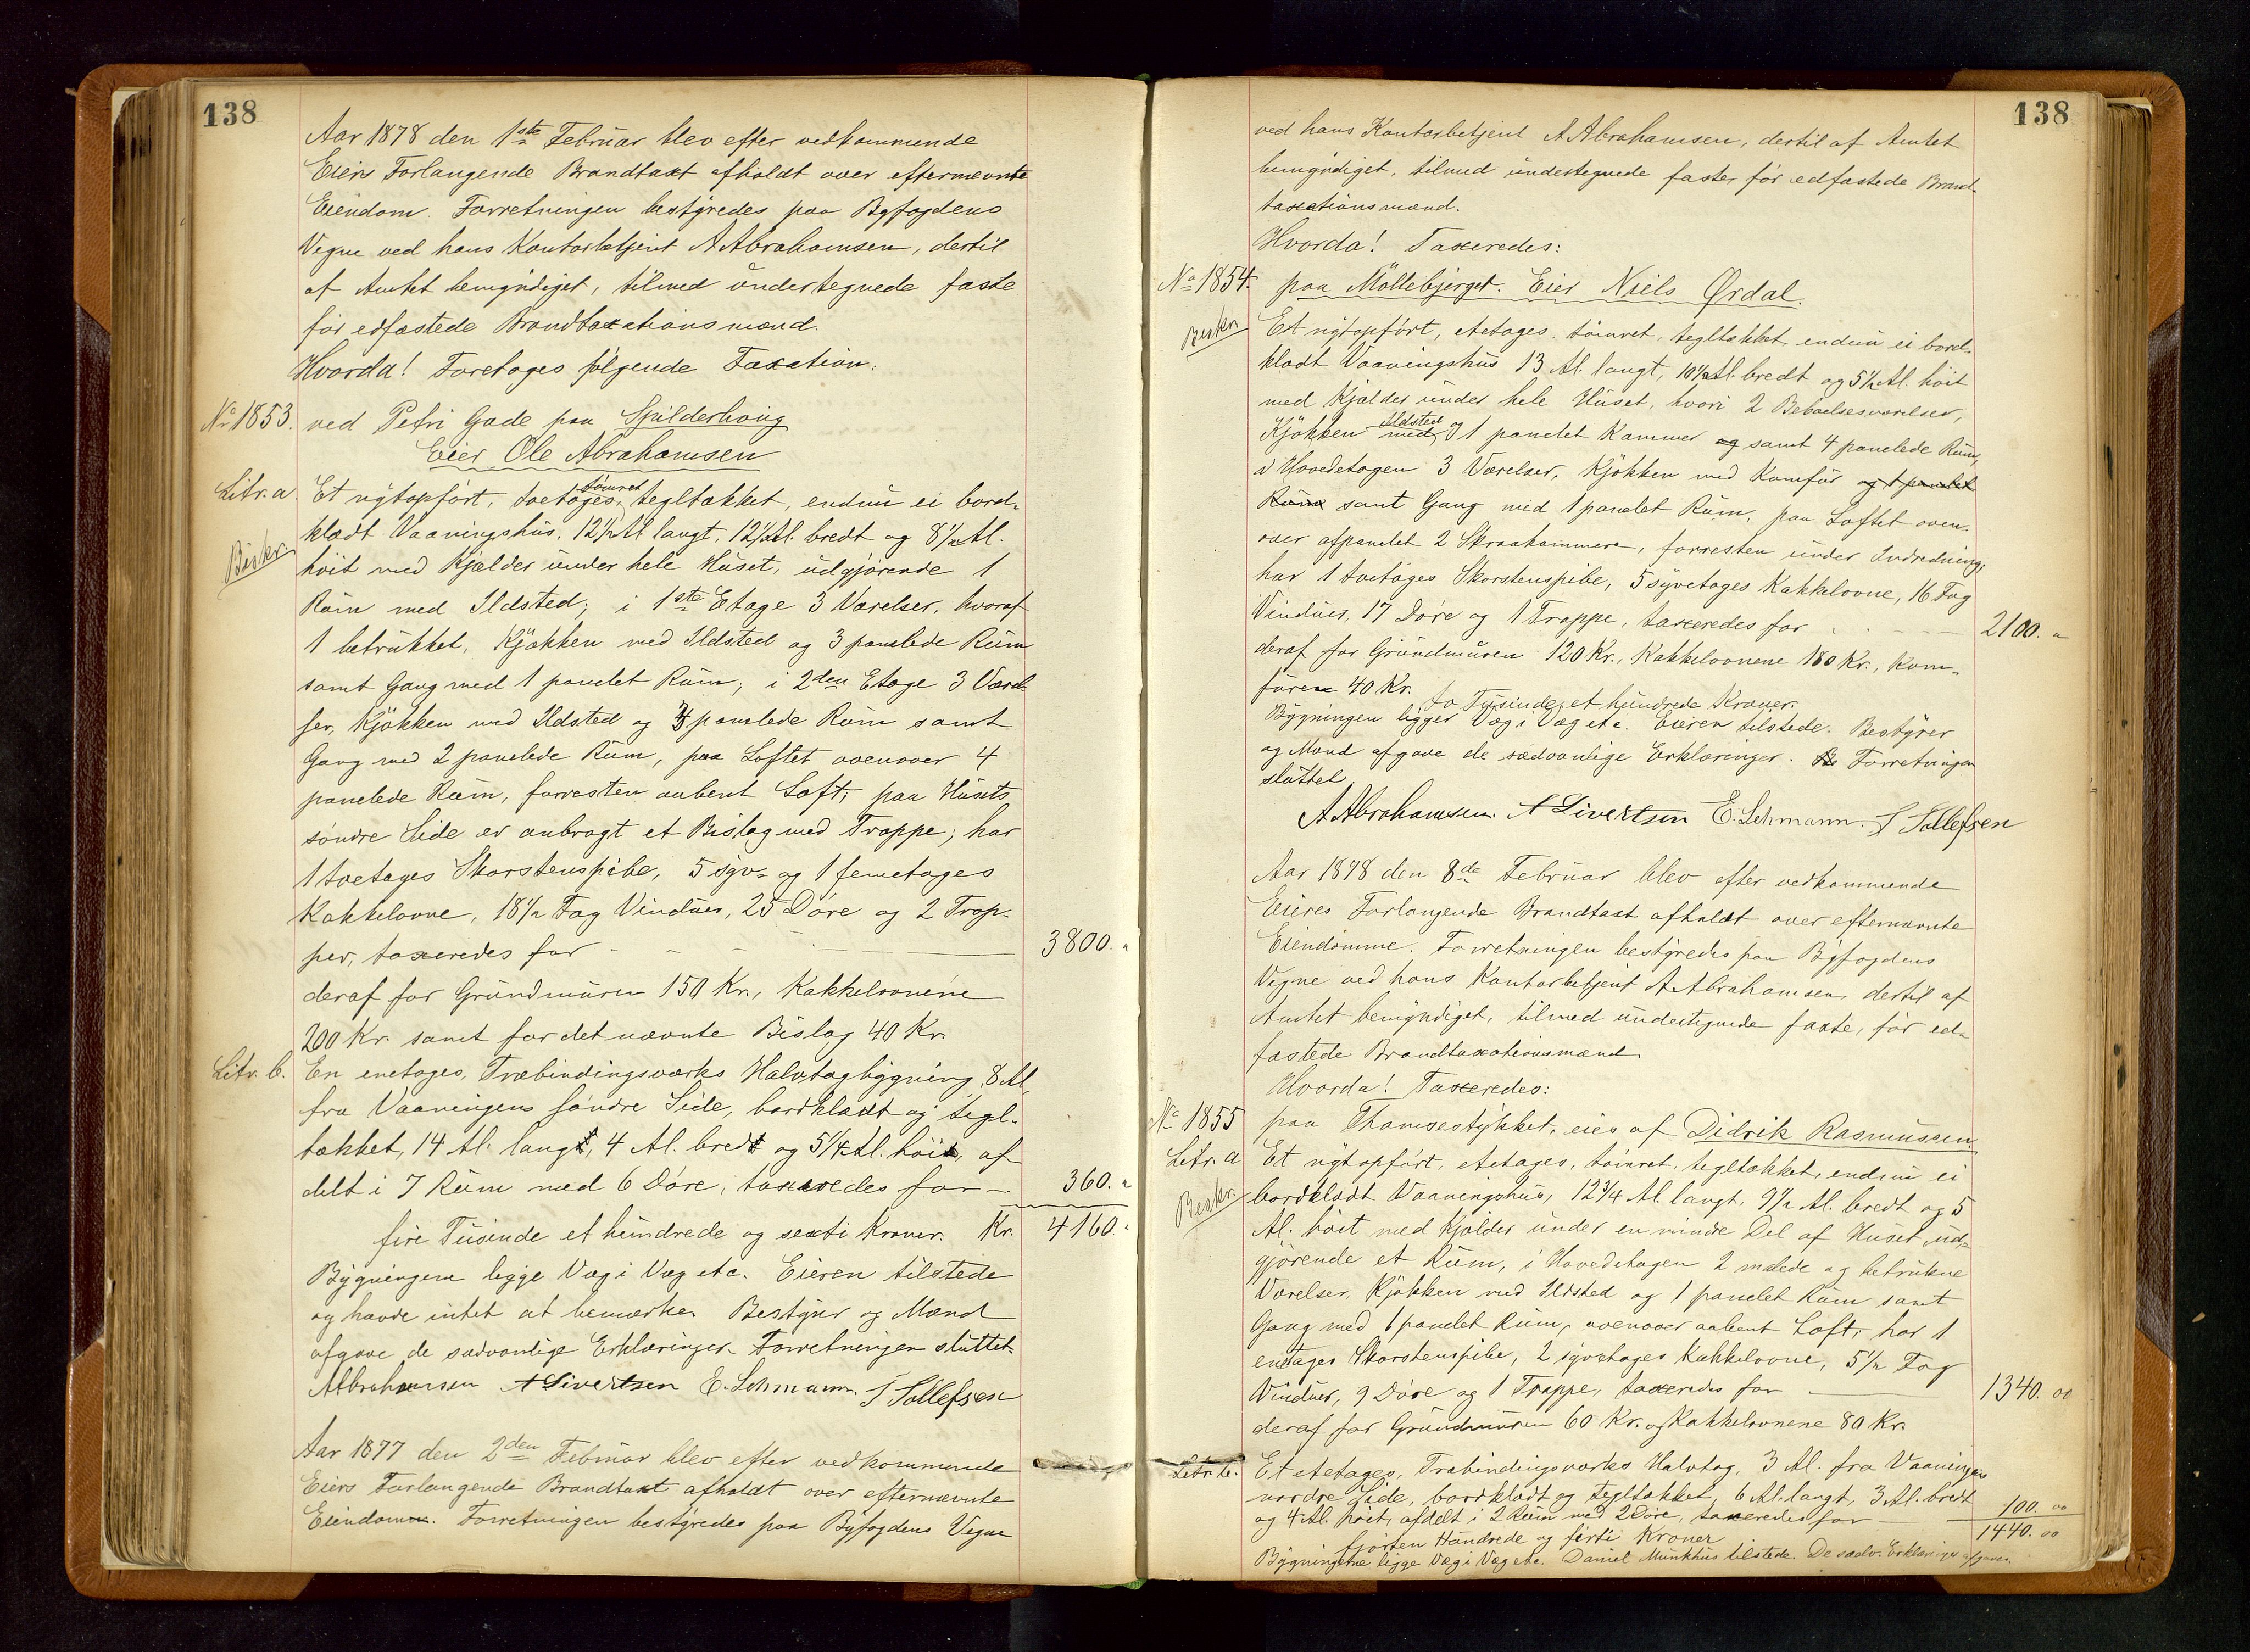 138
Aar 1878 den 1ste Februar blev efter vedkommende
Eiers Forlangende Brandtaxt afholdt over eftermevnte
Eiendom. Forretningen bestyredes paa Byfogdens
Vegne ved hans Kontorbetjent A Abrahamsen, dertil
af Amtet bemyndiget, tilmed undertegnede faste
før edfæstede Brandtaxationsmænd.
Hvorda! Foretoges følgende Taxation.
No 1853. ved Petri Gade paa Spilderhaug
Eier Ole Abrahamsen
Litr. a. Et nytopført, toetages, tømret tegltækket, endnu ei bord-
klædt Vaaningshus, 12 1/2 Al langt, 12 1/2 Al. bredt og 8 1/2 Al.
Beskr.
høit med Kjælder under hele Huset, udgjørende 1
Rum med Ildsted; i 1ste Etage 3 Værelser, hvoraf
1 betrukket, Kjøkken med Ildsted og 3 panelede Rum
samt Gang med 1 panelet Rum; i 2den Etage 3 Værel-
ser, Kjøkken med Ildsted og panelede Rum samt
Gang med 2 panelede Rum, paa Loftet ovenover 4
panelede Rum, forresten aabent Loft; paa Husets
søndre Side er anbragt et Bislag med Trappe; har
1 toetages Skorstenspibe, 5 syv- og 1 femetages
Kakkelovne, 18 1/2 Fag Vinduer, 25 Døre og 2 Trap-
per, taxeredes for - - - 3800. "
deraf for Grundmuren 150 Kr., Kakkelovnene
200 Kr. samt for det nævnte Bislag 40 Kr.
Litr. b. En enetages, Træbindingsværks Halvtagbygning, 8 Al.
fra Vaaningens søndre Side, bordklædt og tegl-
tækket, 14 Al. lang, 4 Al. bred og 5 1/4 Al. høi, af-
delt i 7 Rum med 6 Døre, taxeredes for - 360. "
fire Tusinde et hundrede og sexti Kroner. Kr. 4160. "
Bygningerne ligge Væg i Væg etc. Eieren tilstede
og havde intet at bemærke. Bestyrer og Mænd
afgave de sædvanlige Erklæringer. Forretningen sluttet.
AAbrahamsen A Sivertsen E. Lehmann. T Tollefsen
Aar 1877 den 2den Februar blev efter vedkommende
Eiers Forlangende Brandtaxt afholdt over efternævnte
Eiendom. Forretningen bestyredes paa Byfogdens Vegne
138
ved hans Kontorbetjent A Abrahamsen, dertil af Amtet
bemyndiget, tilmed undertegnede faste, før edfæstede Brand-
taxationsmænd.
Hvorda! Taxeredes:
No 1854. paa Møllebjerget. Eier Niels Ørdal.
Beskr. Et nytopført, etetages, tømret, tegltækket, endnu ei bord-
klædt Vaaningshus 13 Al. langt, 10 1/2 Al. bredt og 5 1/2 Al. høit
med Kjælder under hele Huset, hvori 2 Beboelsesværelser,
Kjøkken med Ildsted og 1 panelet Kammer og samt 4 panelede Rum,
i Hovedetagen 3 Værelser, Kjøkken med Komfur og 1 panelet
Rum samt Gang med 1 panelet Rum, paa Loftet oven-
over afpanelet 2 Skraakammere, forresten under Indredning;
har 1 toetages Skorstenspibe, 5 syvetages Kakkelovne, 16 Fag
Vinduer, 17 Døre og 1 Trappe, taxeredes for - - 2100. "
deraf for Grundmuren 120 Kr., Kakkelovnene 180 Kr., Kom-
furene 40 Kr. to Tusinde, et hundrede Kroner.
Bygningen ligger Væg i Væg etc. Eieren tilstede. Bestyrer
og Mænd afgave de sædvanlige Erklæringer. Forretningen
sluttet
A Abrahamsen. A Sivertsen E. Lehmann. T Tollefsen
Aar 1878 den 8de Februar blev efter vedkommende
Eieres Forlangende Brandtaxt afholdt over efternævnte
Eiendomme. Forretningen bestyredes paa Byfogdens
Vegne ved hans Kontorbetjent A Abrahamsen, dertil af
Amtet bemyndiget, tilmed undertegnede faste, før ed-
fæstede Brandtaxationsmænd.
Hvorda! Taxeredes:
No 1855 paa Thomsestykket, eies af Didrik Rasmussen.
Litr. a Et nytopført, etetages, tømret, tegltækket, endnu ei
Beskr. bordklædt Vaaningshus, 12 3/4 Al. langt, 9 1/2 Al. bredt og 5
Al. høit med Kjælder under en mindre Del af Huset, ud-
gjørende et Rum, i Hovedetagen 2 malede og betrukne
Værelser, Kjøkken med Ildsted og 1 panelet Rum samt
Gang med 1 panelet Rum, ovenover aabent Loft; har 1
enetages Skorstenspibe, 2 syvetages Kakkelovne, 5 1/2 Fag
Vinduer, 9 Døre og 1 Trappe, taxeredes for - 1340. 00
deraf for Grundmuren 60 Kr. og Kakkelovnene 80 Kr.
Litr. b. Et etetages, Træbindingsværks Halvtag, 3 Al. fra Vaaningens
nordre Side, bordklædt og tegltækket, 6 Al. langt, 3 Al. bredt
og 4 Al. høit, afdelt i 2 Rum med 2 Døre, taxeredes for - 100. 00
fjorten Hundrede og førti Kroner 1440. 00
Bygningerne ligge Væg i Væg etc. Daniel Munkhus tilstede. De sædv. Erklæringer afgaves.